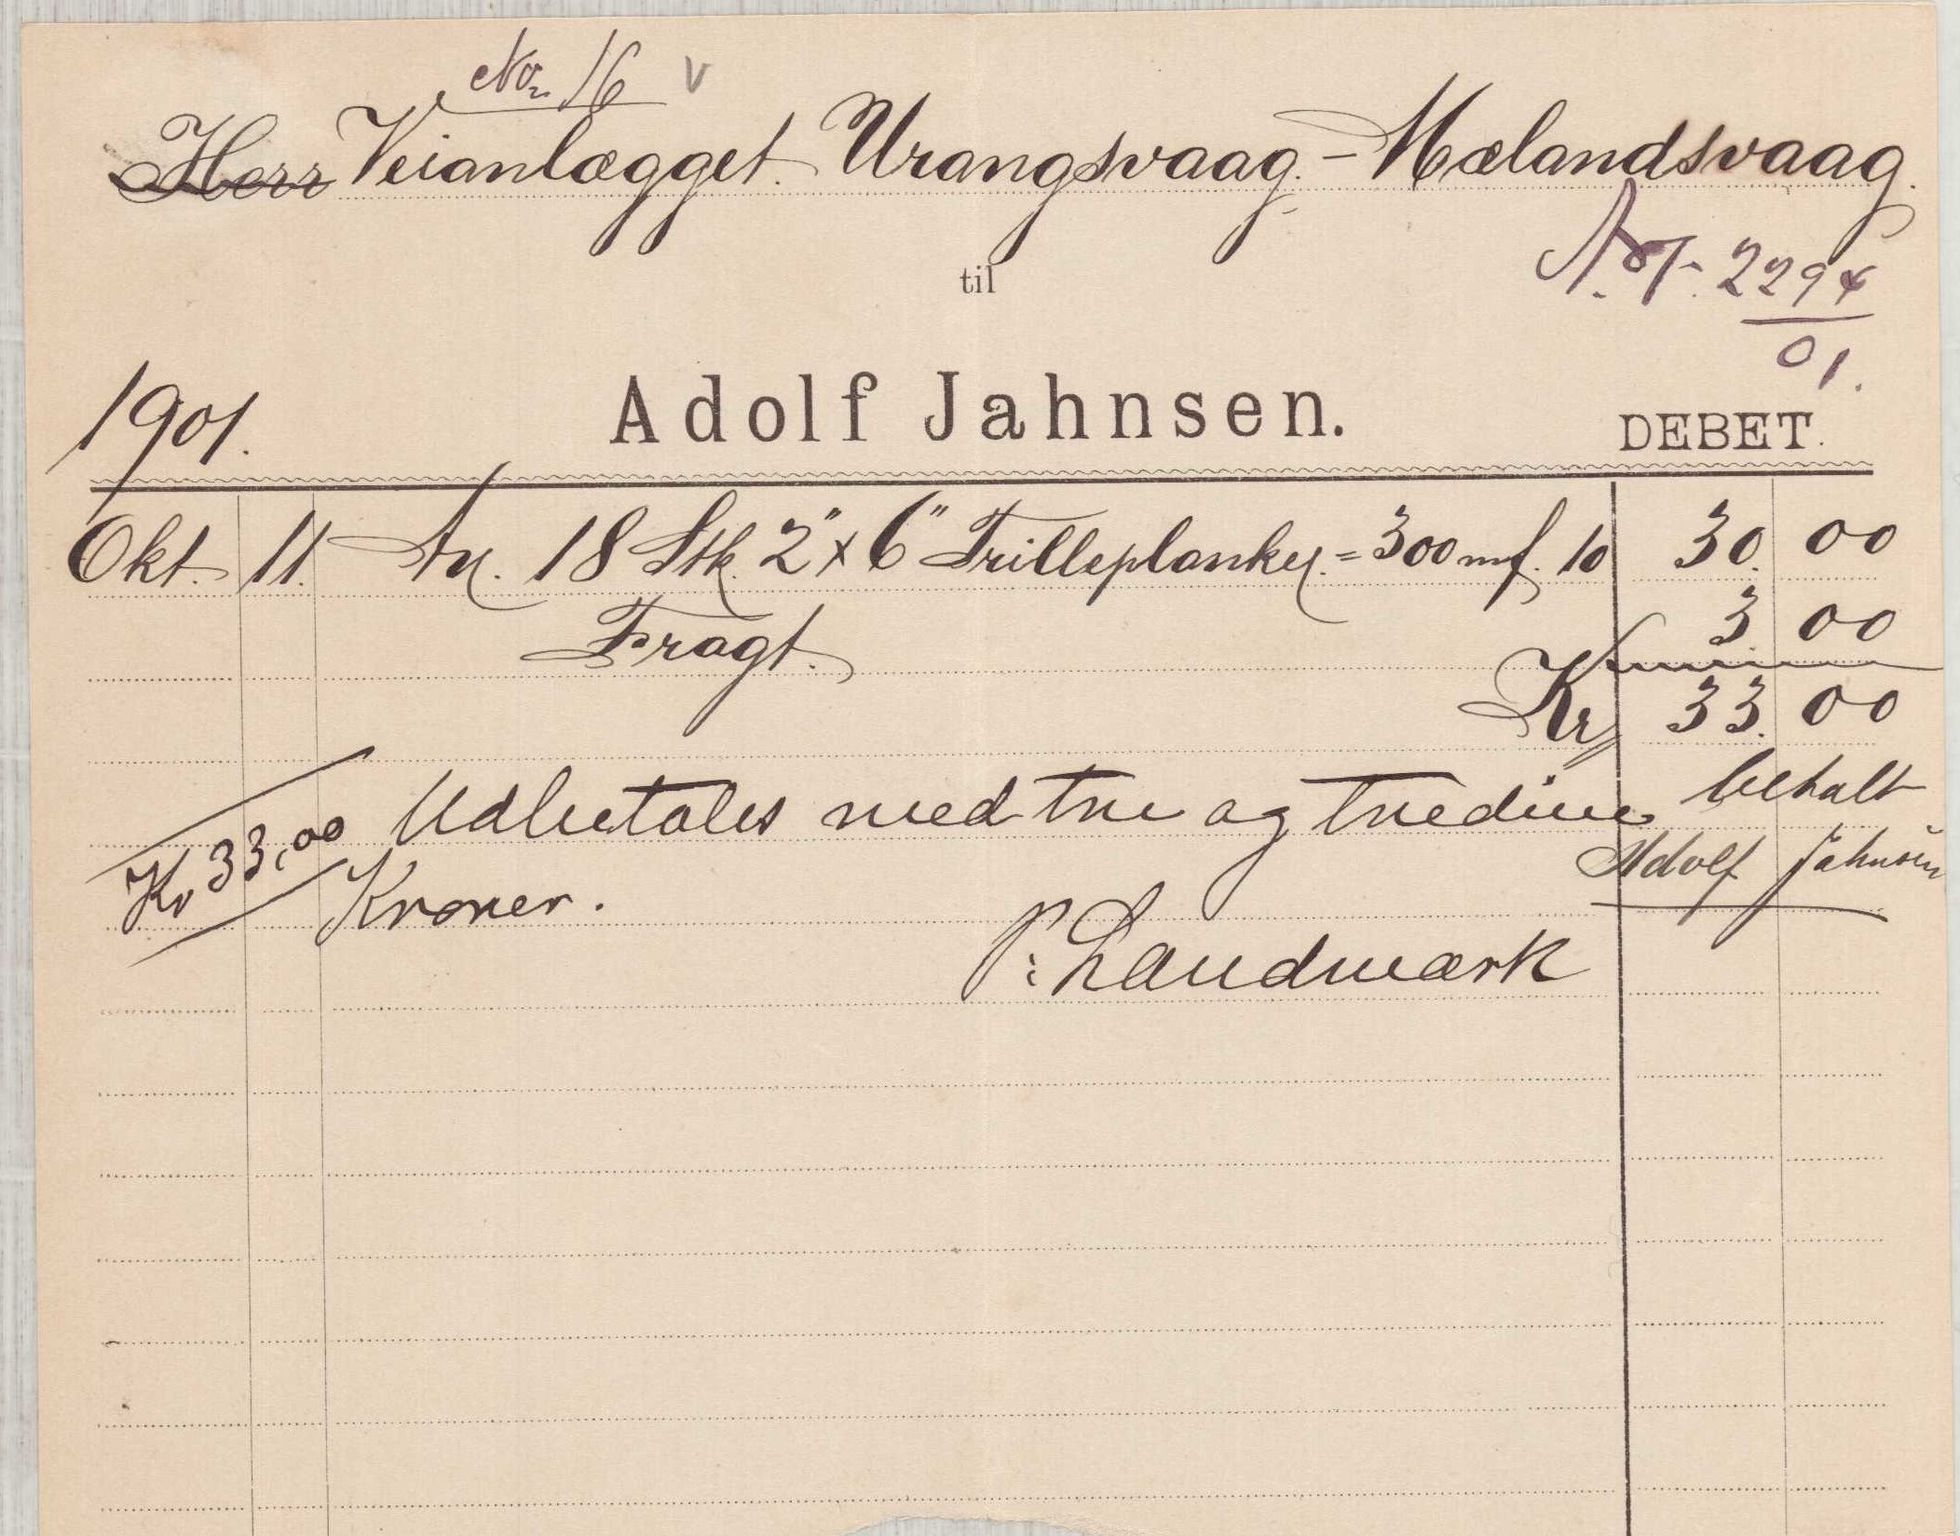 No. 16 v
Herr Veianlægget Urangsvaag. - Mælandsvaag.
til
2294
01.
1901.
Adolf Jahnsen.
DEBET.
Okt. 11. An. 18 Stk. 2" x 6" Trilleplanker. = 300 mf. 10 30. 00
Fragt. 3. 00
Kr 33. 00
Kr 33,00 Udbetales med tre og tredive
Kroner.
betalt
Adolf Jahnsen
P: Landmark